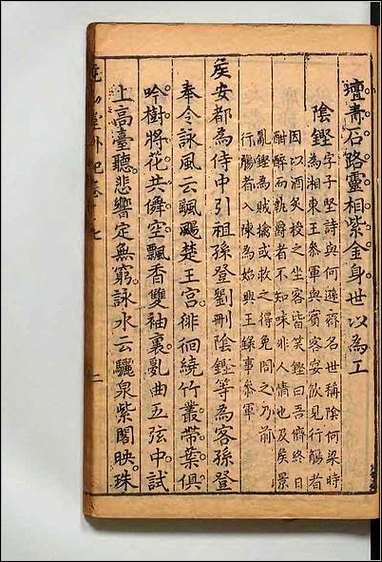 壇青石路靈相紫金身世以為工
陰鏗
字子堅詩與何遜齊名世稱陰何梁時
為湘東王參軍與賓客宴飲見行觴者
因以酒炙授之坐客皆笑鏗曰吾儕終日
酣醉而執爵者不知味非人情也及矦景
亂鏗為賊擒或救之得免問之乃前
行觴者入陳為始興王錄事參軍
矦安都為侍中引祖孫登劉刪陰鏗等為客孫登
奉令詠風云飄颺楚王宮徘徊繞竹叢帶葉俱
吟樹將花共儛空飄香雙袖裏亂曲五弦中試
上高臺聽悲響定無窮詠水云驪泉紫闕映珠
山堂外紀卷十七
二